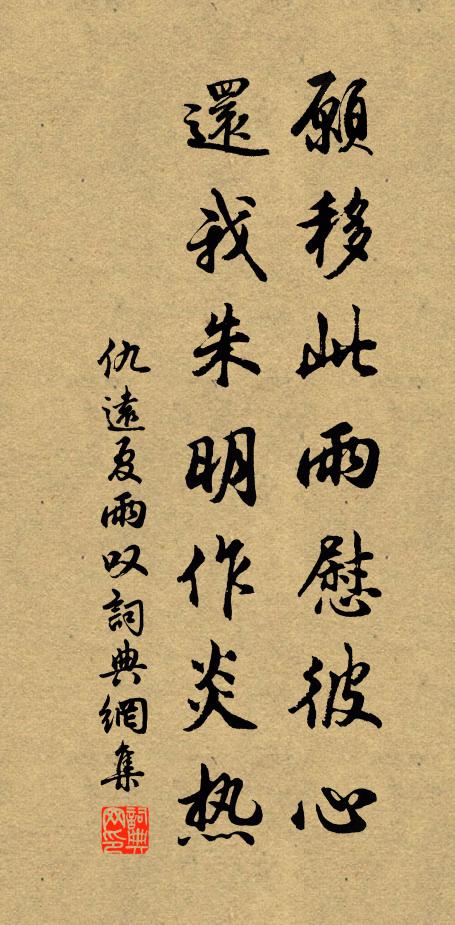 願移此雨慰彼心
還我朱明作炎热
仇遠夏雨叹詞典網集
詞典网印